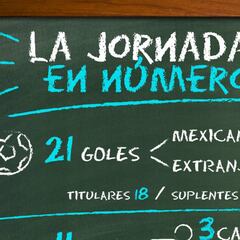 LA JORNADA
EN NÚMERO
21 GOLES
MEXICAN
EXTRANJ
TITULARES 18 / SUPLENTES
3 CA